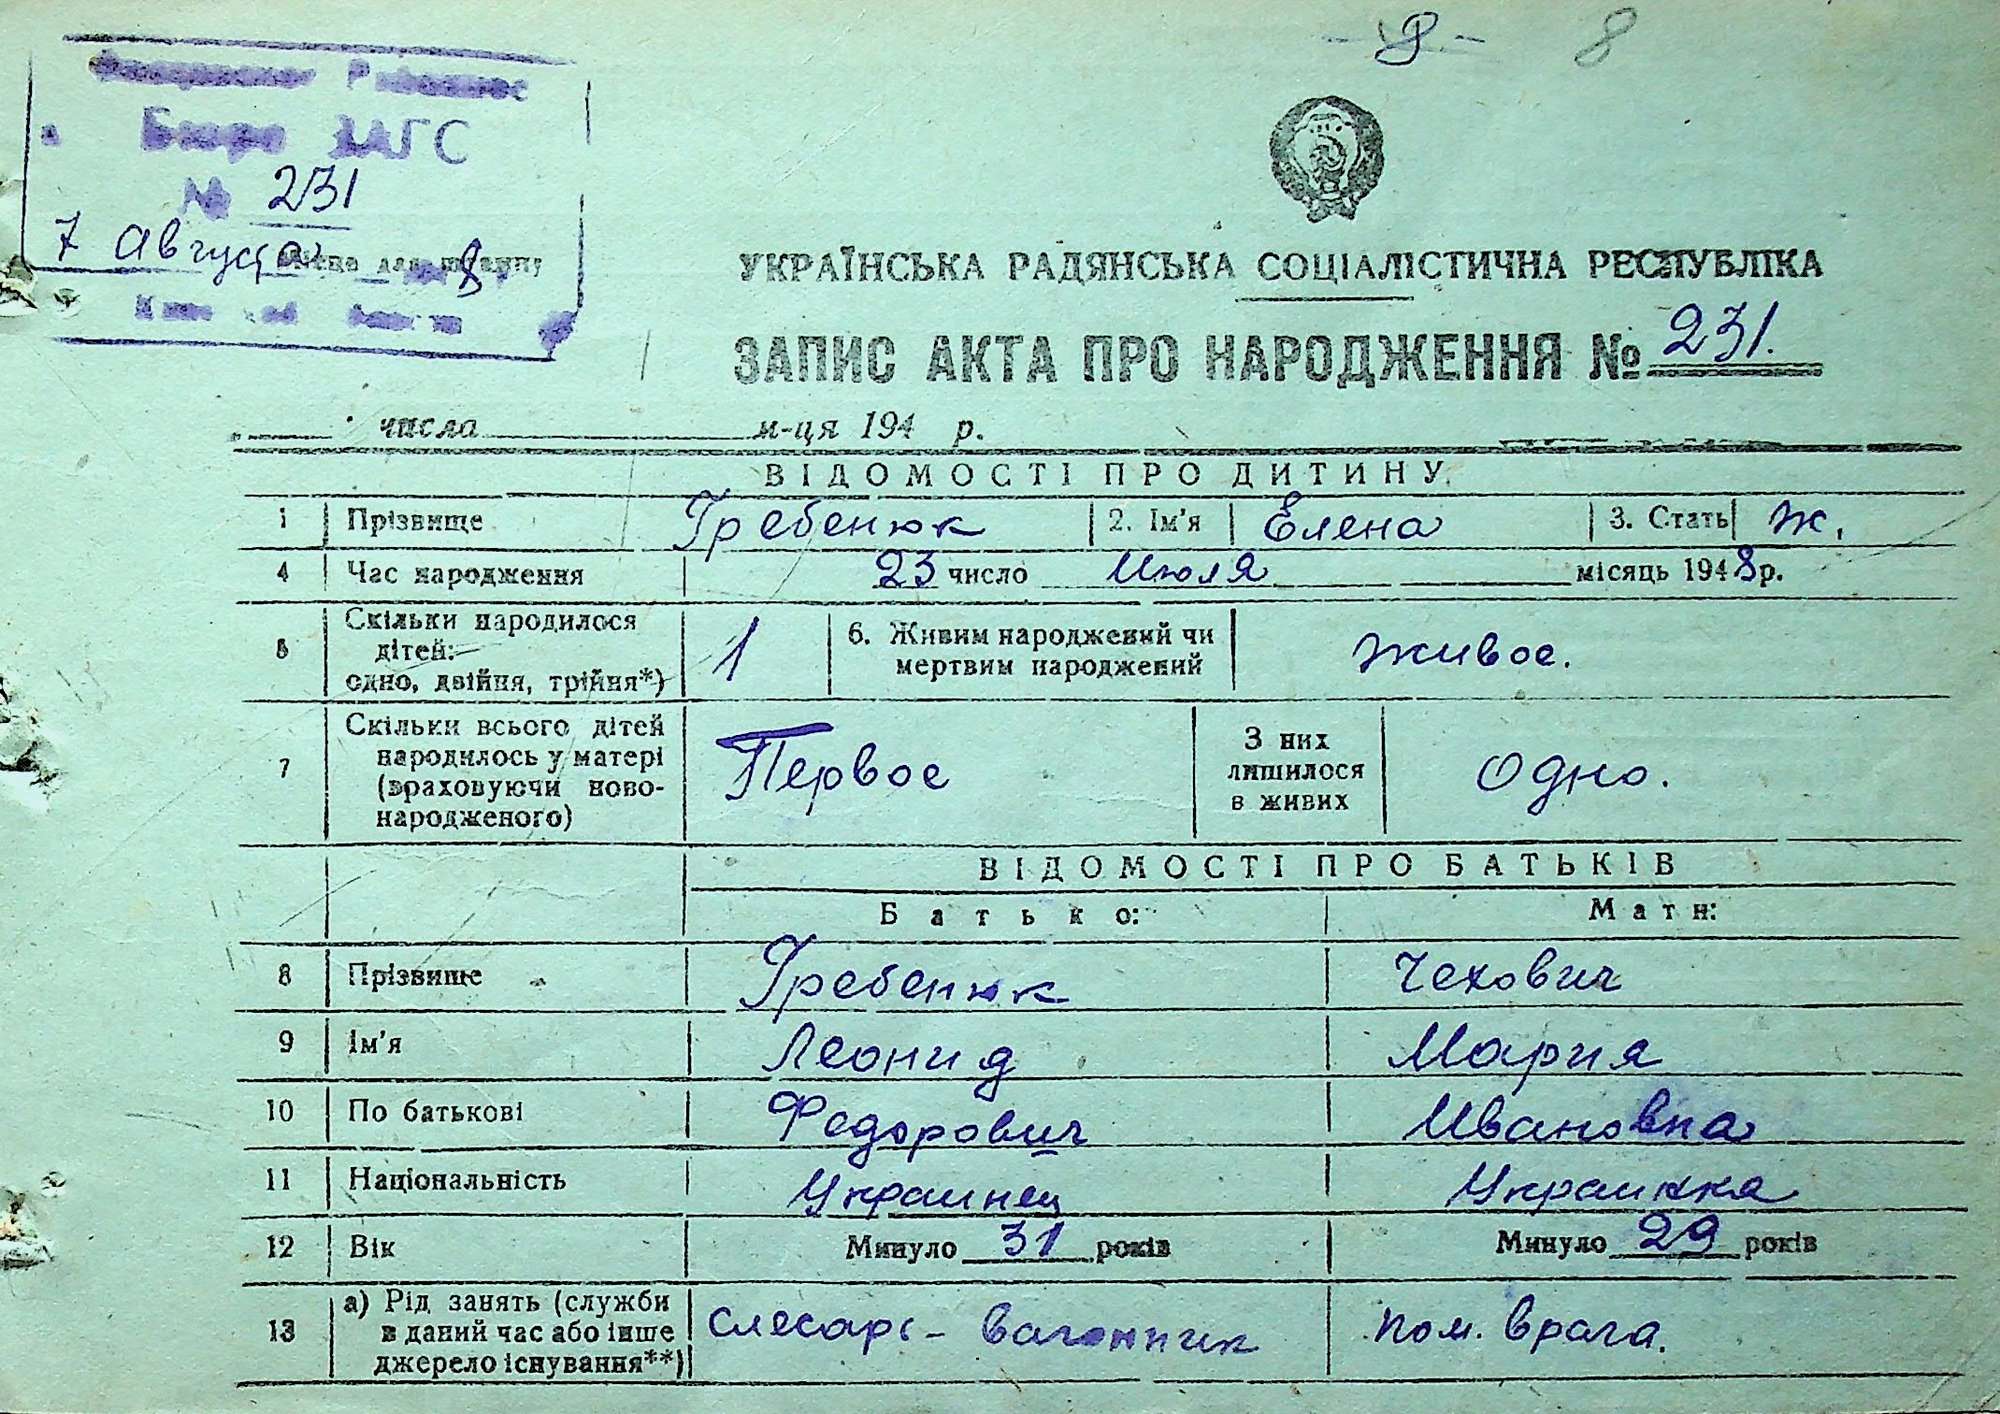 - 8 - 8
Бюро ЗАГС
№ 231
7 Августа 8
Місце для штампу
УКРАЇНСЬКА РАДЯНСЬКА СОЦІАЛІСТИЧНА РЕСПУБЛІКА
ЗАПИС АКТА ПРО НАРОДЖЕННЯ № 231.
числа м-ця 194 р.
ВІДОМОСТІ ПРО ДИТИНУ
1 Прізвище Гребенюк 2. Ім'я Елена 3. Стать ж.
4 Час народження 23 число Июля місяць 1948 р.
5 Скільки народилося дітей: одно, двійня, трійня*) 1 6. Живим народжений чи мертвим народжений живое.
7 Скільки всього дітей народилось у матері (враховуючи ново-народженого) Первое З них лишилося в живих Одно.
ВІДОМОСТІ ПРО БАТЬКІВ
Батько: Мати:
8 Прізвище Гребенюк Чехович
9 Ім'я Леонид Мария
10 По батькові Федорович Ивановна
11 Національність Украинец Украинка
12 Вік Минуло 31 років Минуло 29 років
13 а) Рід занять (служби в даний час або інше джерело існування**) Слесарь-вагонник пом. врача.